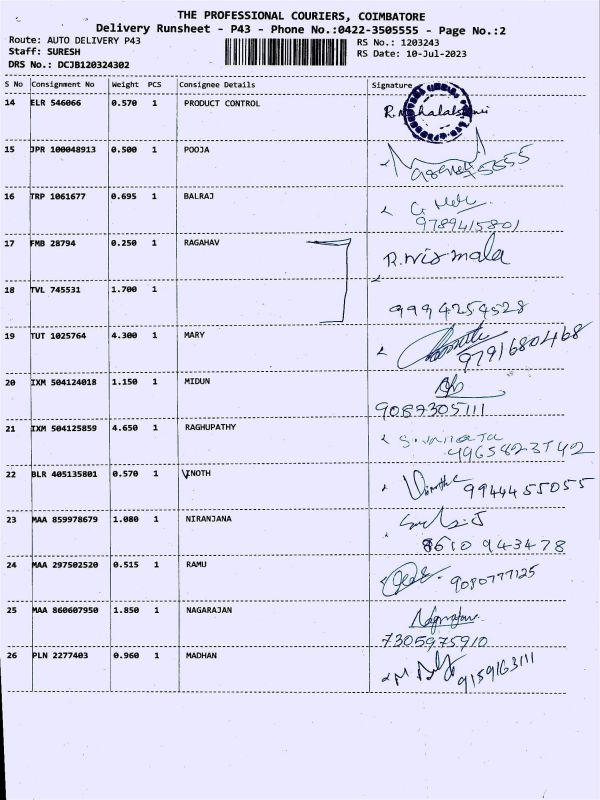 THE PROFESSIONAL COURIERS, COIMBATORE
Delivery Runsheet - P43 - Phone No.:0422-3505555 - Page No.:2
Route: AUTO DELIVERY P43 RS No.: 1203243
Staff: SURESH RS Date: 10-Jul-2023
DRS No.: DCJB120324302
S No Consignment No Weight PCS Consignee Details Signature
14 ELR 546066 0.570 1 PRODUCT CONTROL
15 JPR 100048913 0.500 1 POOJA
16 TRP 1061677 0.695 1 BALRAJ
9789415801
17 FMB 28794 0.250 1 RAGAHAV R.Nirmala
18 TVL 745531 1.700 1
9994254528
19 TUT 1025764 4.300 1 MARY
9791680468
20 IXM 504124018 1.150 1 MIDUN
9087305111
21 IXM 504125859 4.650 1 RAGHUPATHY
22 BLR 405135801 0.570 1 VINOTH
9944455055
23 MAA 859978679 1.080 1 NIRANJANA
8610 943478
24 MAA 297502520 0.515 1 RAMU
9080777125
25 MAA 860607950 1.850 1 NAGARAJAN
7305975910
26 PLN 2277403 0.960 1 MADHAN
9159163111